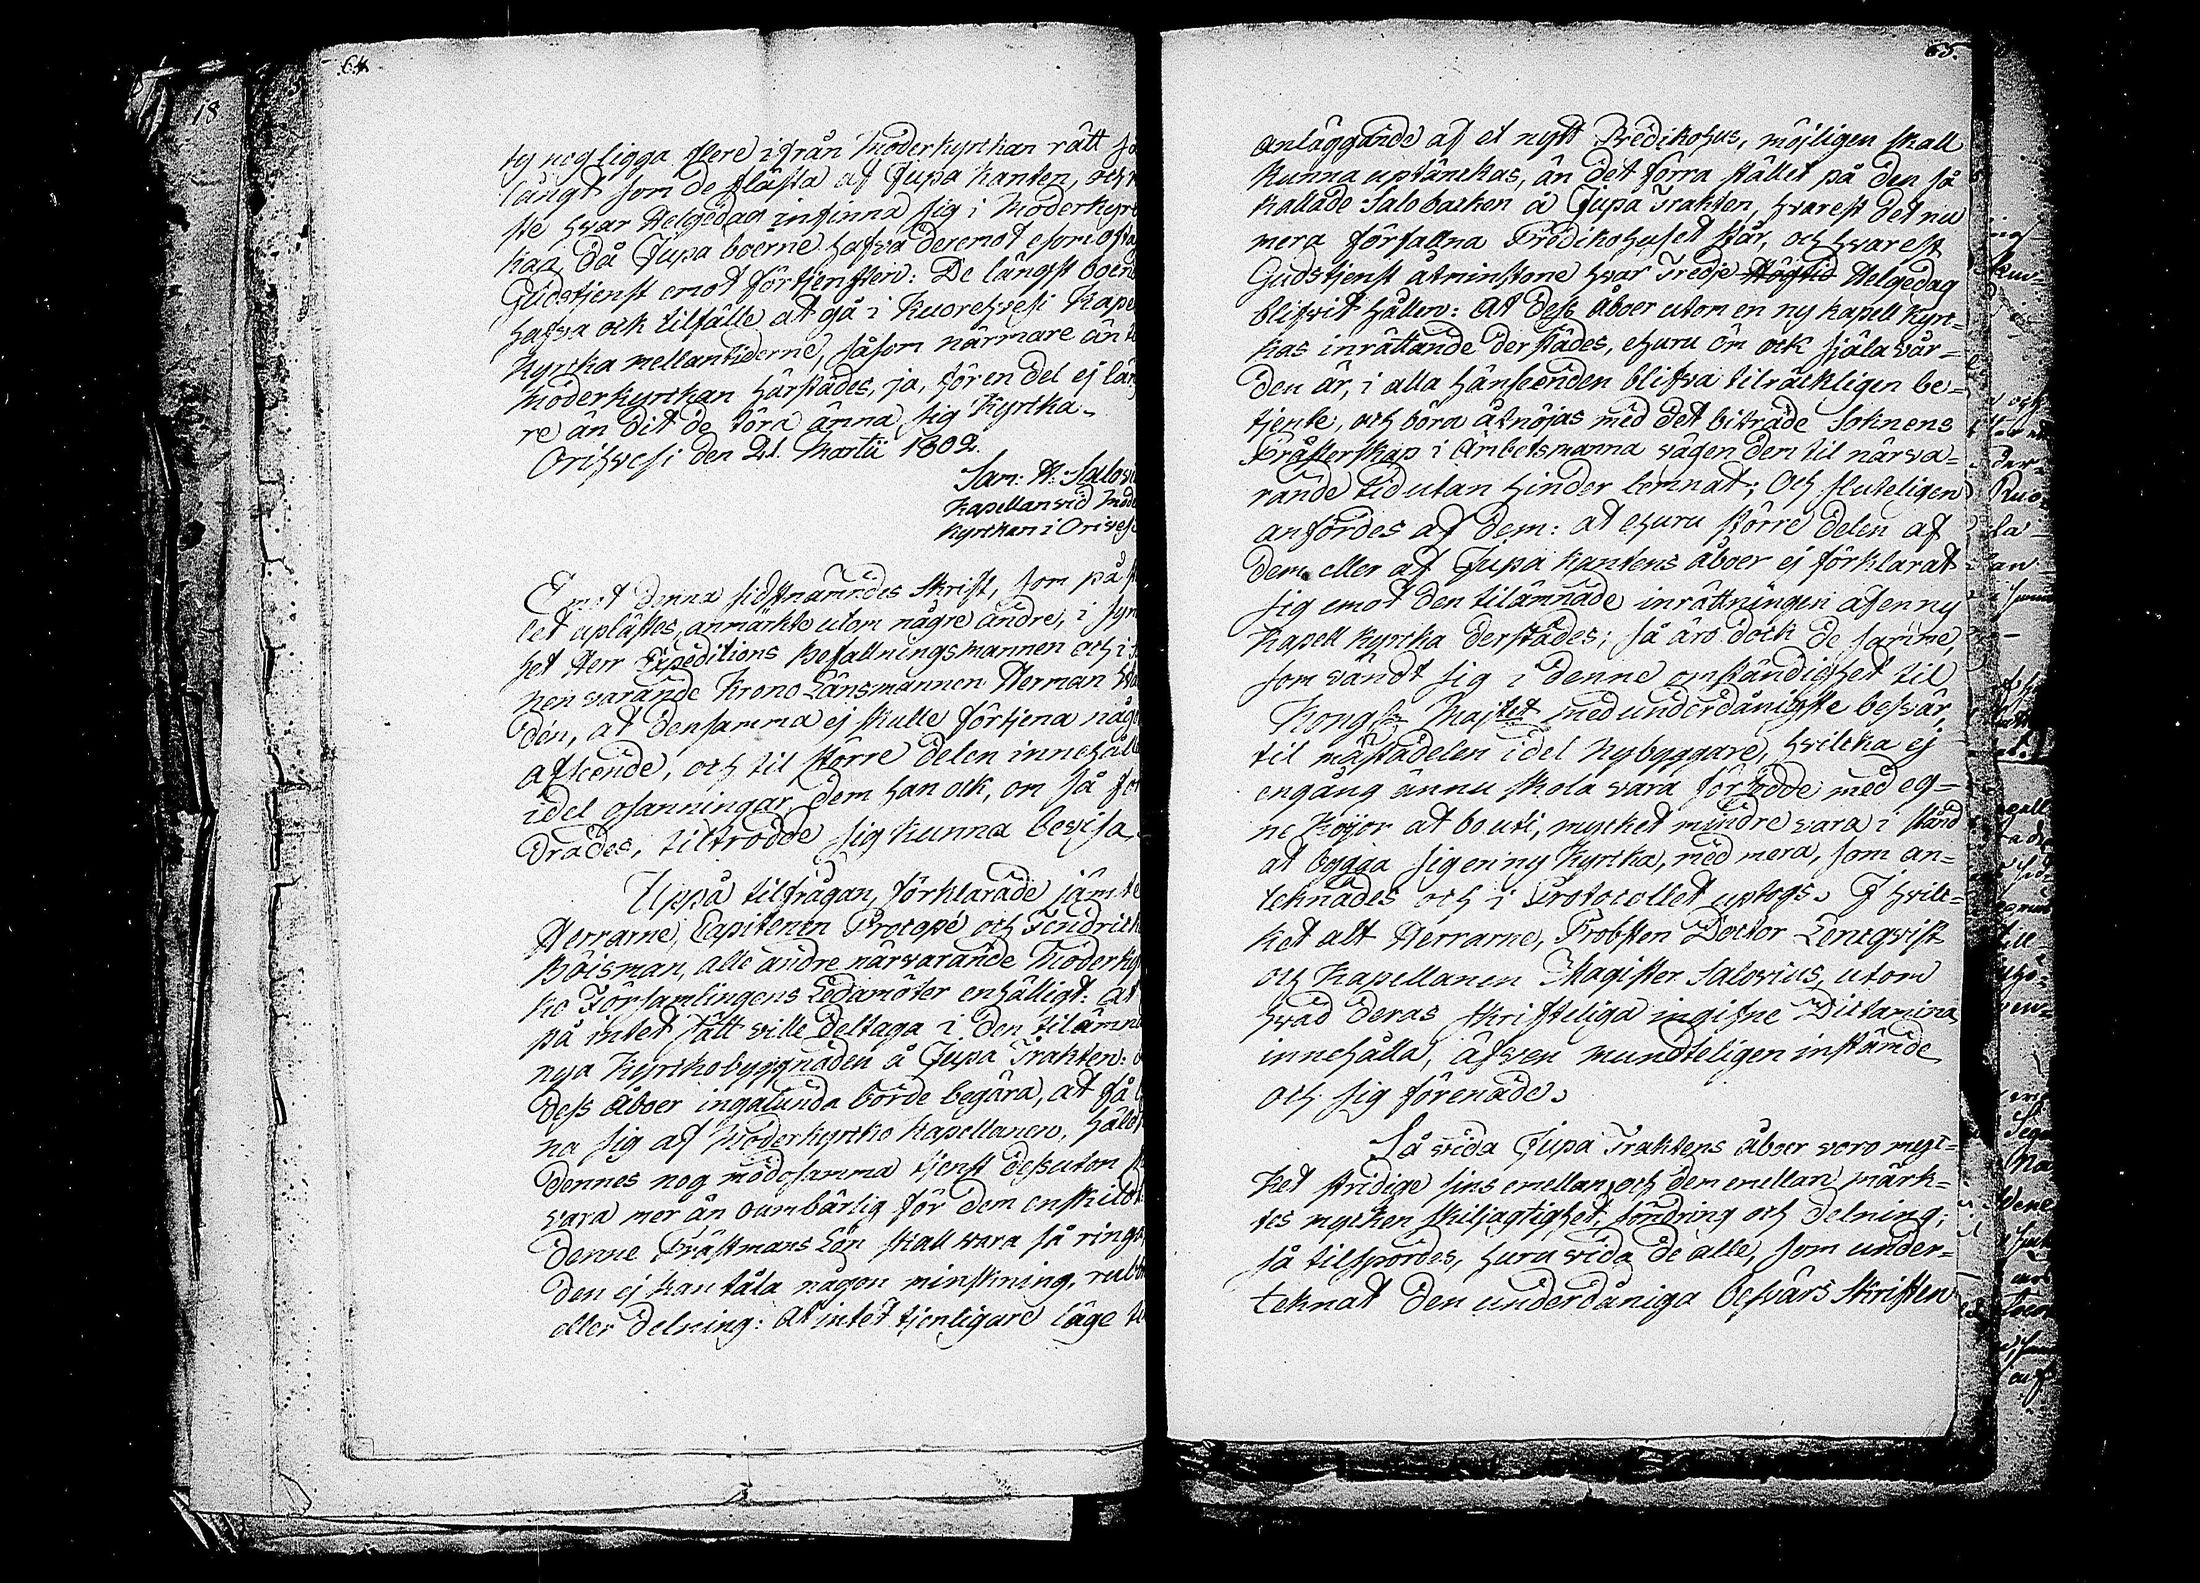 64.
18
ty nog ligga flere ifrån Moderkyrkan rätt så
långt som de flästa af Jupa kanten, och
ste hvar Helgedag infinna sig i Moderkyr
kan, då Jupa boerne hafva deremot esomoftast
Gudstjenst emot förtjensten: De längst boen
hafva ock tilfälle at gå i Kuorehvesi Kape
Kyrka mellantiderne, såsom närmare än
Moderkyrkan härstädes, ja, för en del ej län
re än dit de töra ärna sig Kyrka.
Orihvesi den 21. Martii 1802.
Sam: H: Salovi
Kapellan vid Mode
Kyrkan i Orives
Emot denna sidstnämndes skrift, som på
let uplästes, anmärkte utom någre andre, i syn
het Herr Expeditions Befallningsmannen och i
nen varande Krono Länsmannen Herman
dén, at densamma ej skulle förtjena någ
afseende, och til större delen innehåll
idel osanningar, dem han ock, om så for
drades, tiltrodde sig kunna bevisa.
Uppå tilfrågan, förklarade jämte
Herrarne, Capitenen Procopé och Fendrick
Boisman, alle andre närvarande Moderky
ko Församlingens Ledamöter enhälligt: at
på intet sätt ville deltaga i den tilämn
nya Kyrkobyggnaden å Jupa Trakten:
dess åboer ingalunda borde begära, at få
na sig af Moderkyrko Kapellanen, hälst
dennes nog mödosamma tjenst dessutom
vara mer än oumbärlig för dem enskildt
denne Prästmans Lön skall vara så ringa
den ej kan tåla någon minskning, rubb
eller delning: At intet tjenligare läge
65.
anläggande af et nytt Predikohus, möjligen skall
kunna uptänckas, än det förra stället på den så
kallade Salobacken å Jupa Trakten, hvarest det nu
mera förfallna Predikohuset står, och hvarest
Gudstjenst åtminstone hvar Tredje Högtid Helgedag
blifvit hållen: At dess åboer utom en ny Kapell Kyr-
kas inrättande derstädes, ehuru öm ock själavår-
den är, i alla hänseenden blifva tilräckligen be-
tjente, och böra åtnöjas med det biträde Soknens
Prästerskap i Ämbetsmanna vägen dem til närva-
rande tid utan hinder lemnat; Och sluteligen
anfördes af dem: at ehuru större delen af
dem eller af Jupa kantens åboer ej förklarat
sig emot den tilämnade inrättningen af en ny
Kapell Kyrka derstädes; så äro dock de samme,
som vändt sig i denne omständighet til
Kongl. Maj:tet med underdånigste besvär,
til mästadelen idel Nybyggare, hvilcka ej
engång ännu skola vara försedde med eg-
ne Kojor at bo uti, mycket mindre vara i stånd
at bygga sig en ny Kyrka, med mera, som an-
teknades och i Protocollet uptogs. I hvilc-
ket alt Herrarne, Probsten Doctor Lencqvist
och Kapellanen Magister Salovius, utom
hvad deras skrifteliga ingifne Dictamina
innehålla, äfven mundteligen instämde
och sig förenade.
Så vida Jupa Traktens åboer voro myc-
ket stridige sins emellan, och dem emellan märk-
tes mycken skiljagtighet, söndring och delning;
så tilspordes, huru vida de alle, som under-
teknat den underdåniga Besvärs skriften